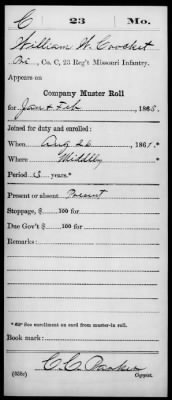 C 23 Mo.
William W. Crocket
Pvt., Co. C, 23 Reg't Missouri Infantry.
Appears on
Company Muster Roll
for Jan & Feb, 186
Joined for duty and enrolled:
When Aug 26, 1861.*
Where
Period 3 years.*
Present or absent Present
Stoppage, $ 100 for
Due Gov't $ 100 for
Remarks:
* See enrollment on card from muster-in roll.
Book mark:
(358c) Copyist.